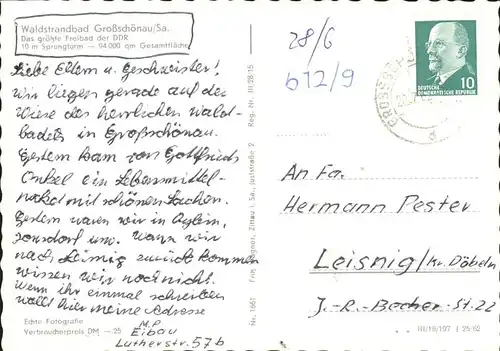 Waldstrandbad Großschönau/Sa.
Das größte Freibad der DDR
10 m Sprungturm — 94.000 qm Gesamtfläche
Liebe Eltern u. Geschwister!
Wir liegen gerade auf der
Wiese des herrlichen Wald-
bades in Großschönau.
Gestern kam von Gottfrieds
Onkel ein Lebensmittel-
paket mit schönen Sachen.
Gestern waren wir in Oybin,
Jonsdorf usw. Wann wir
nach Leisnig zurück kommen
wissen wir noch nicht.
Wenn ihr einmal schreiben
wollt hier meine Adresse
M.P.
Eibau
Lutherstr. 57b
Echte Fotografie
Verbraucherpreis DM —25
Nr. 1661
Reg. Nr. III.28.15
28/6
b12/9
DEUTSCHE
DEMOKRATISCHE REPUBLIK
10
An Fa.
Hermann Pester
Leisnig/Kr. Döbeln
J.-R.-Becher-St. 22
III/18/197 I 25/62